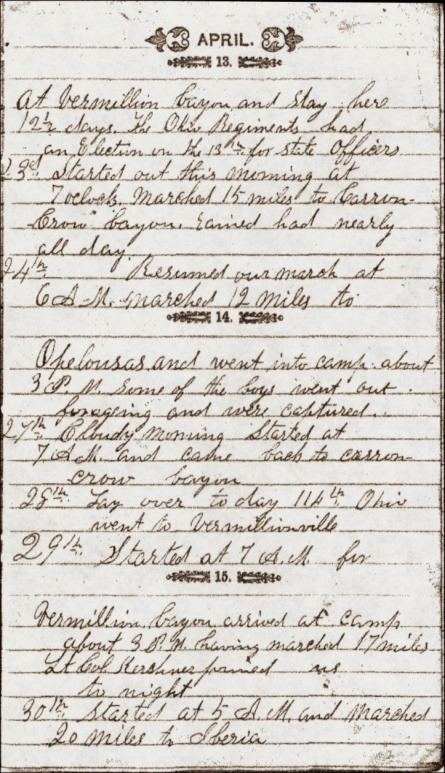 APRIL.
13.
At Vermillion bayou and stay here
12½ days. The Ohio Regiments had
an Election on the 13th for State Officers
23d Started out this morning at
7 oclock. Marched 15 miles to Carron-
Crow bayou. rained had nearly
all day.
24th Resumed our march at
6 A.M. marched 12 miles to
14.
Opelousas and went into camp about
3 P.M. Some of the boys went out
forageing and were captured.
27th Cloudy Morning Started at
7 A.M. and came back to carron-
crow bayou
28th Lay over to day 114th Ohio
went to Vermillionville
29th Started at 7 A.M. for
15.
Vermillion bayou arrived at camp
about 3 P.M. having marched 17 miles
Lt Col Kershner joined us
to night
30th Started at 5 A.M. and Marched
20 miles to Iberia